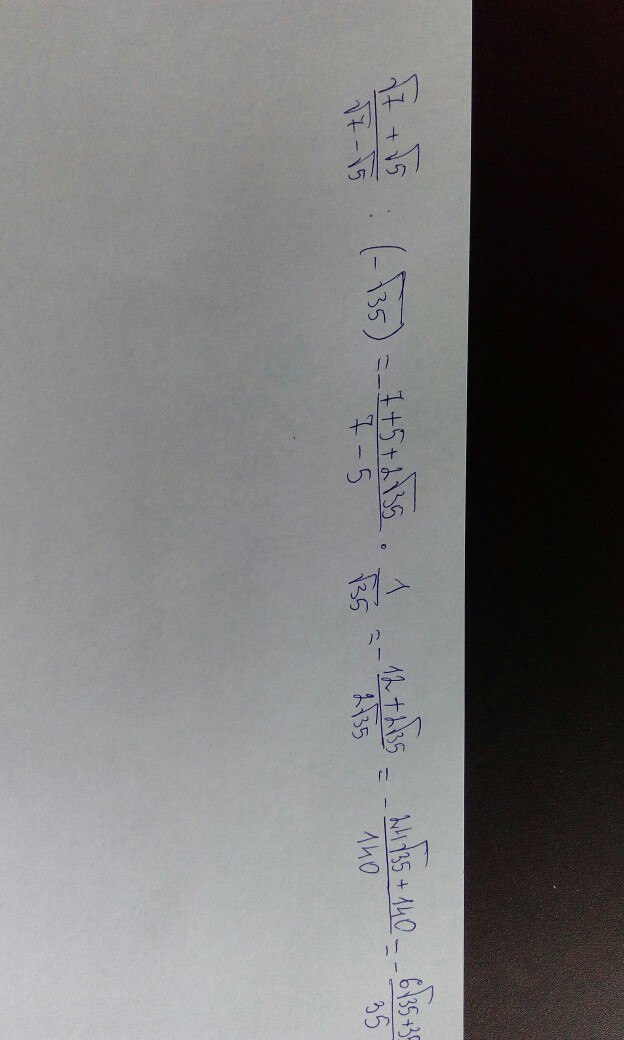 (√7 + √5)/(√7 - √5) : (-√35) = - (7 + 5 + 2√35)/(7 - 5) · 1/√35 = - (12 + 2√35)/(2√35) = - (24√35 + 140)/140 = - (6√35 + 35)/35